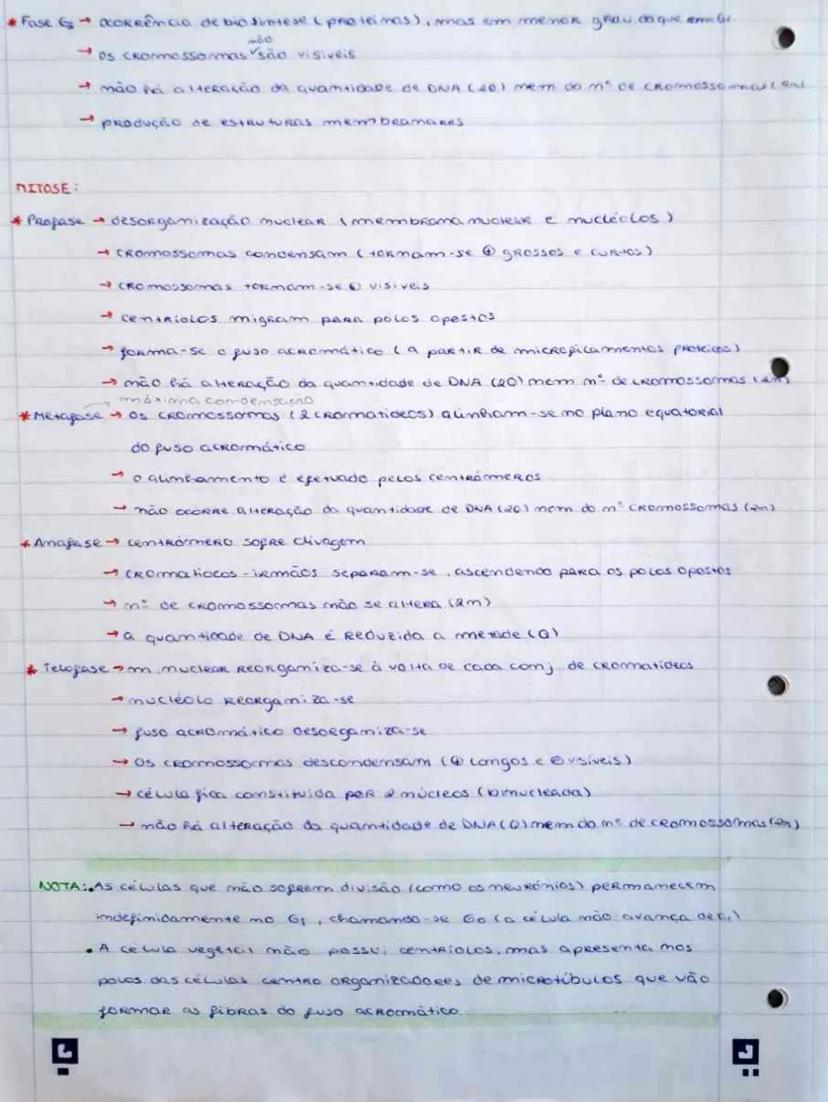 * Fase G₂ → ocorrência de biossíntese (proteínas), mas em menor grau do que em G1
→ os cromossomas não são visíveis
→ não há alteração da quantidade de DNA (2Q) nem do nº de cromossomas (2n)
→ produção de estruturas membranares
MITOSE:
* Profase → desorganização nuclear (membrana nuclear e nucléolos)
→ cromossomas condensam (tornam-se ⊕ grossos e curtos)
→ cromossomas tornam-se ⊕ visíveis
→ centríolos migram para polos opostos
→ forma-se o fuso acromático (a partir de microfilamentos proteicos)
→ não há alteração da quantidade de DNA (2Q) nem nº de cromossomas (2n)
máxima condensação
* Metafase → os cromossomas (2 cromatídeos) alinham-se no plano equatorial
do fuso acromático
→ o alinhamento é efetuado pelos centrómeros
→ não ocorre alteração da quantidade de DNA (2Q) nem do nº cromossomas (2n)
* Anafase → centrómero sofre clivagem
→ cromatídeos-irmãos separam-se, ascendendo para os polos opostos
→ nº de cromossomas não se altera (2n)
→ a quantidade de DNA é reduzida a metade (Q)
* Telofase → m. nuclear reorganiza-se à volta de cada conj de cromatídeos
→ nucléolo reorganiza-se
→ fuso acromático desorganiza-se
→ os cromossomas descondensam (⊕ longos e ⊖ visíveis)
→ célula fica constituída por 2 núcleos (binucleada)
→ não há alteração da quantidade de DNA (Q) nem do nº de cromossomas (2n)
NOTA: • As células que não sofrem divisão (como os neurónios) permanecem
indefinidamente no G1, chamando-se G0 (a célula não avança de G1)
• A célula vegetal não possui centríolos, mas apresenta nos
polos das células centro organizadores de microtúbulos que vão
formar as fibras do fuso acromático.